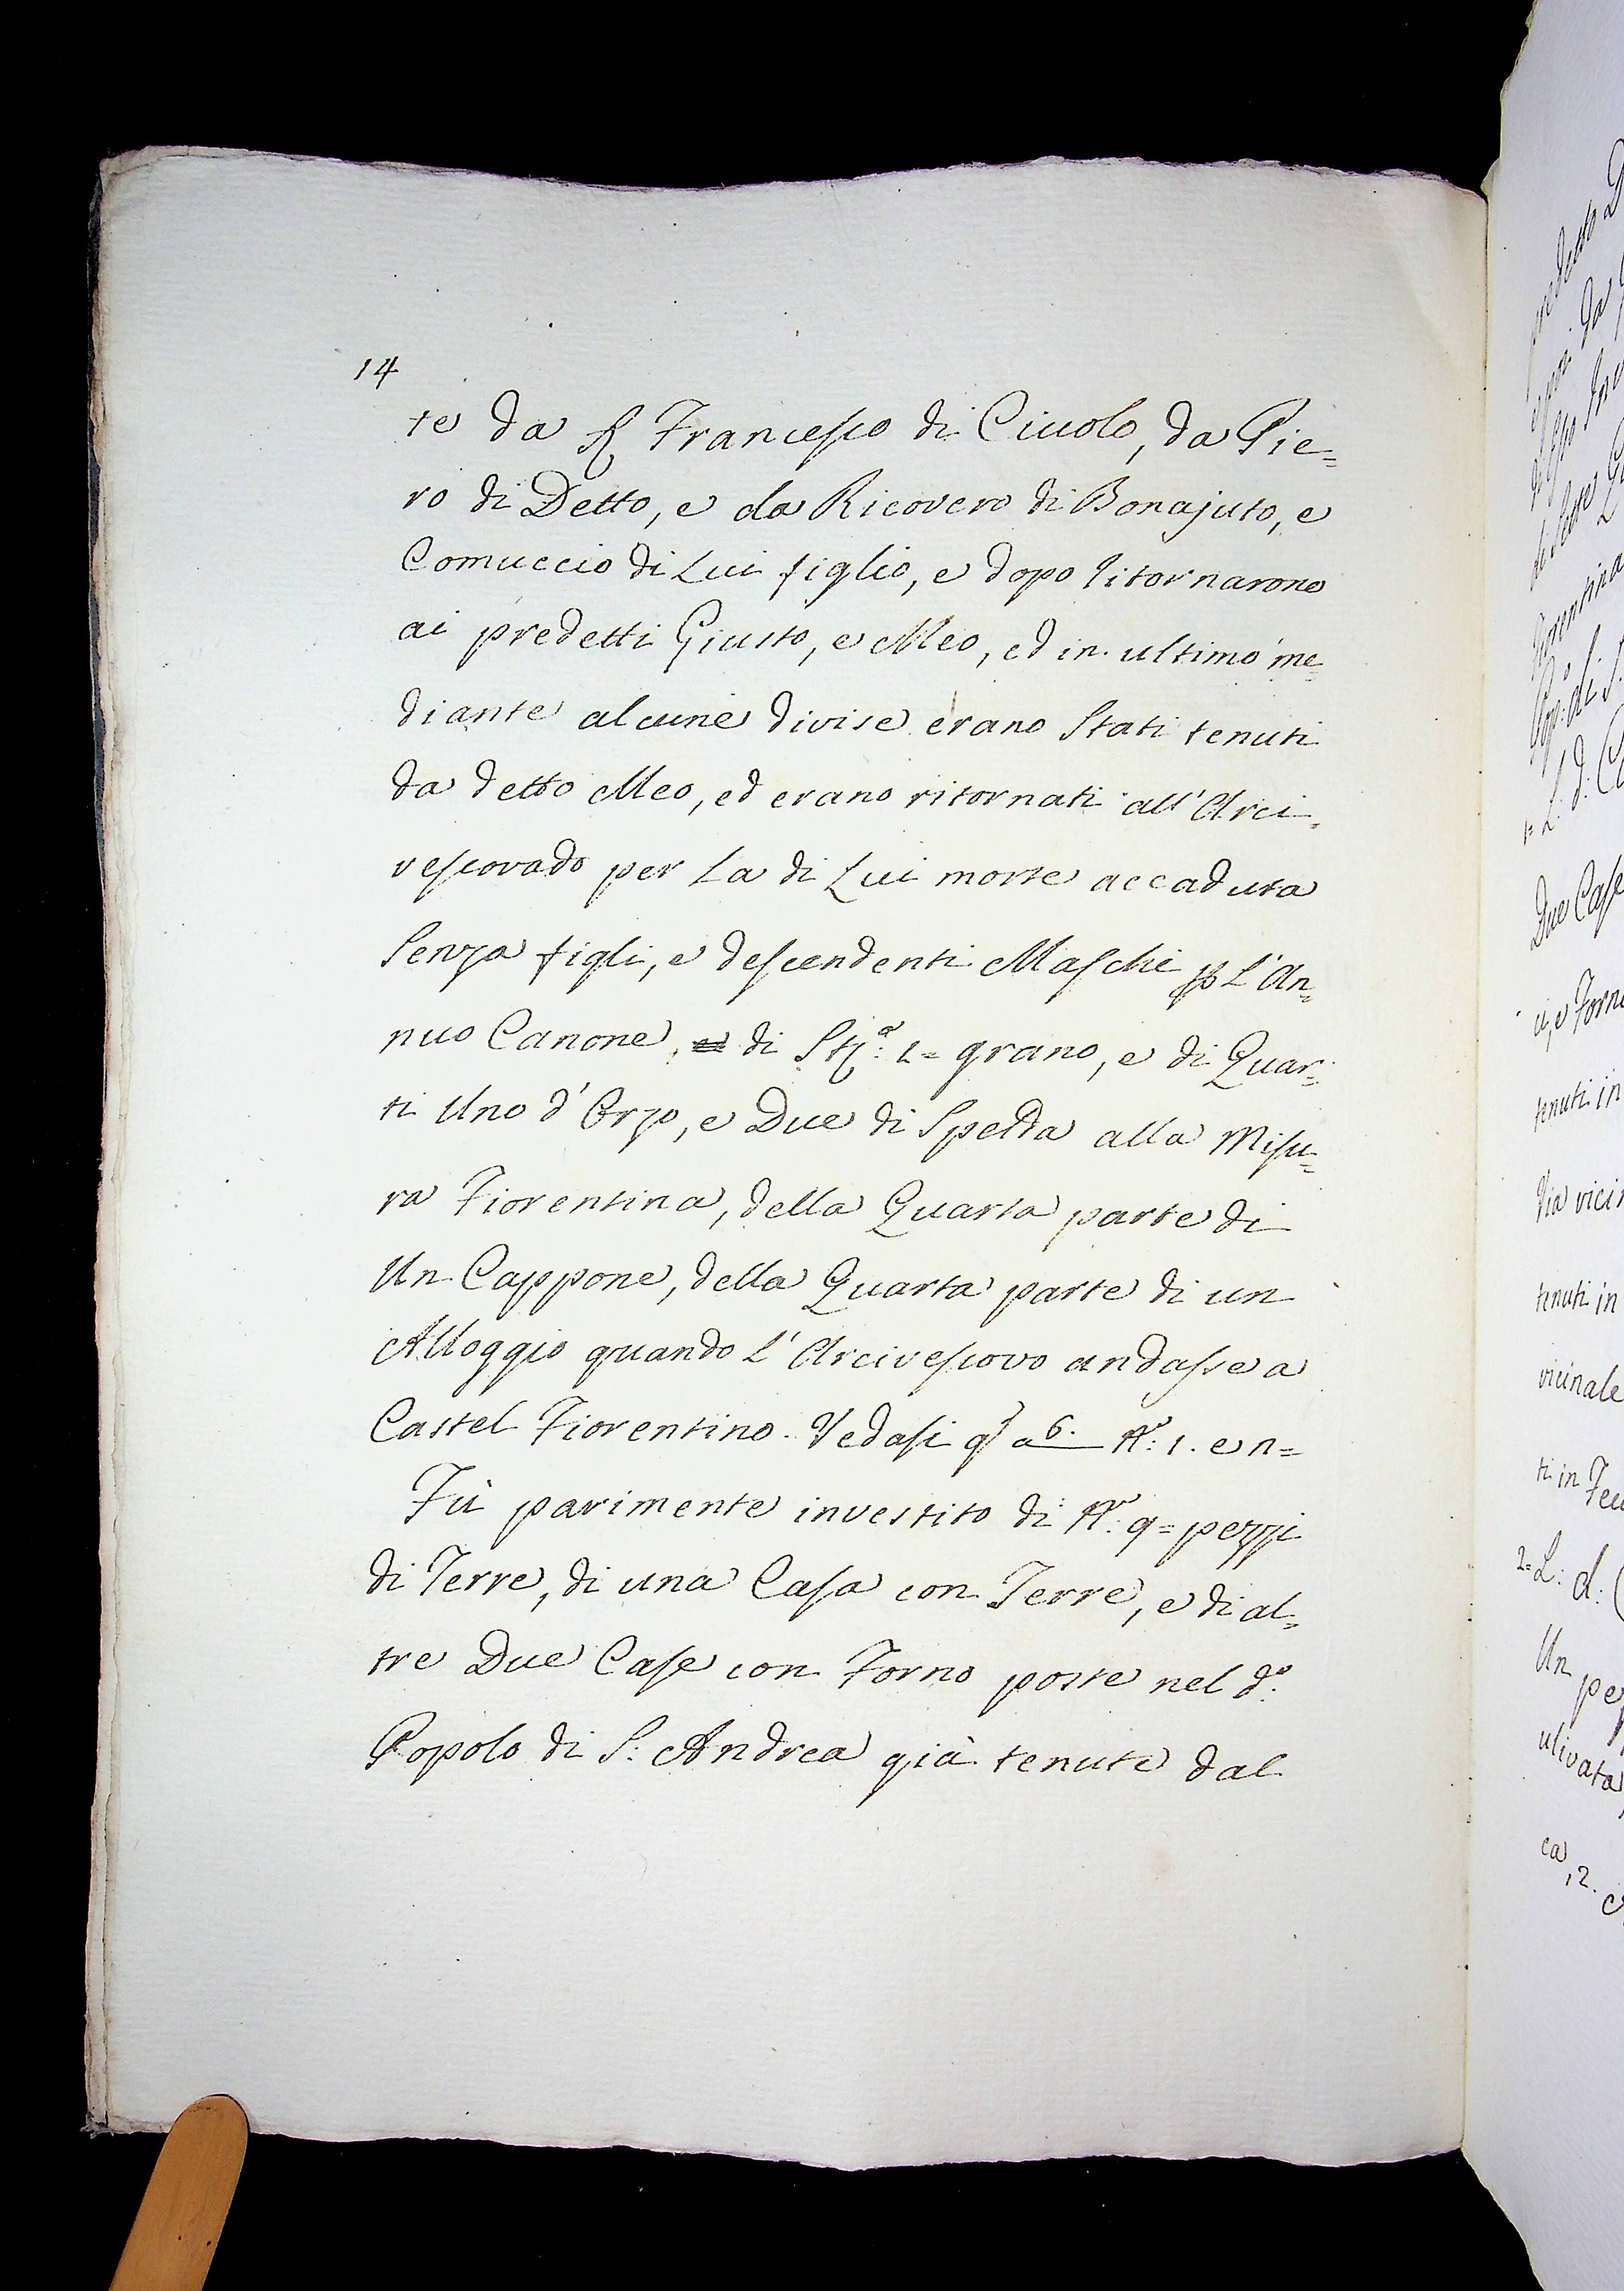 14
te da Francesco di Ciuolo, da Pie=
ro di Detto, e da Ricovero di Bonajuto, e
Comuccio di Lui figlio, e dopo ritornarono
ai predetti Giusto, e Meo, ed in ultimo me=
diante alcune divise erano Stati tenuti
da detto Meo, ed erano ritornati all'Arci=
vescovado per La di Lui morte accaduta
Senza figli, e descendenti Maschi p L'An=
nuo Canone di 1= grano, e di Quar=
ti Uno d'Orzo, e Due di Spelda alla Misu=
ra Fiorentina, della Quarta parte di
Un Cappone, della Quarta parte di un
Alloggio quando L'Arcivescovo andasse a
Castel Fiorentino. Vedasi q a 6. N°: 1. e n=
Fù parimente investito di N°: 9= pezzi
di Terre, di una Casa con Terre, e di al=
tre Due Case con Forno poste nel d°:
Popolo di S: Andrea già tenute dal
Due Case
e Forno
tenuti in
tenuti in
vicinale
2= L: d:
Un pe
ulivata